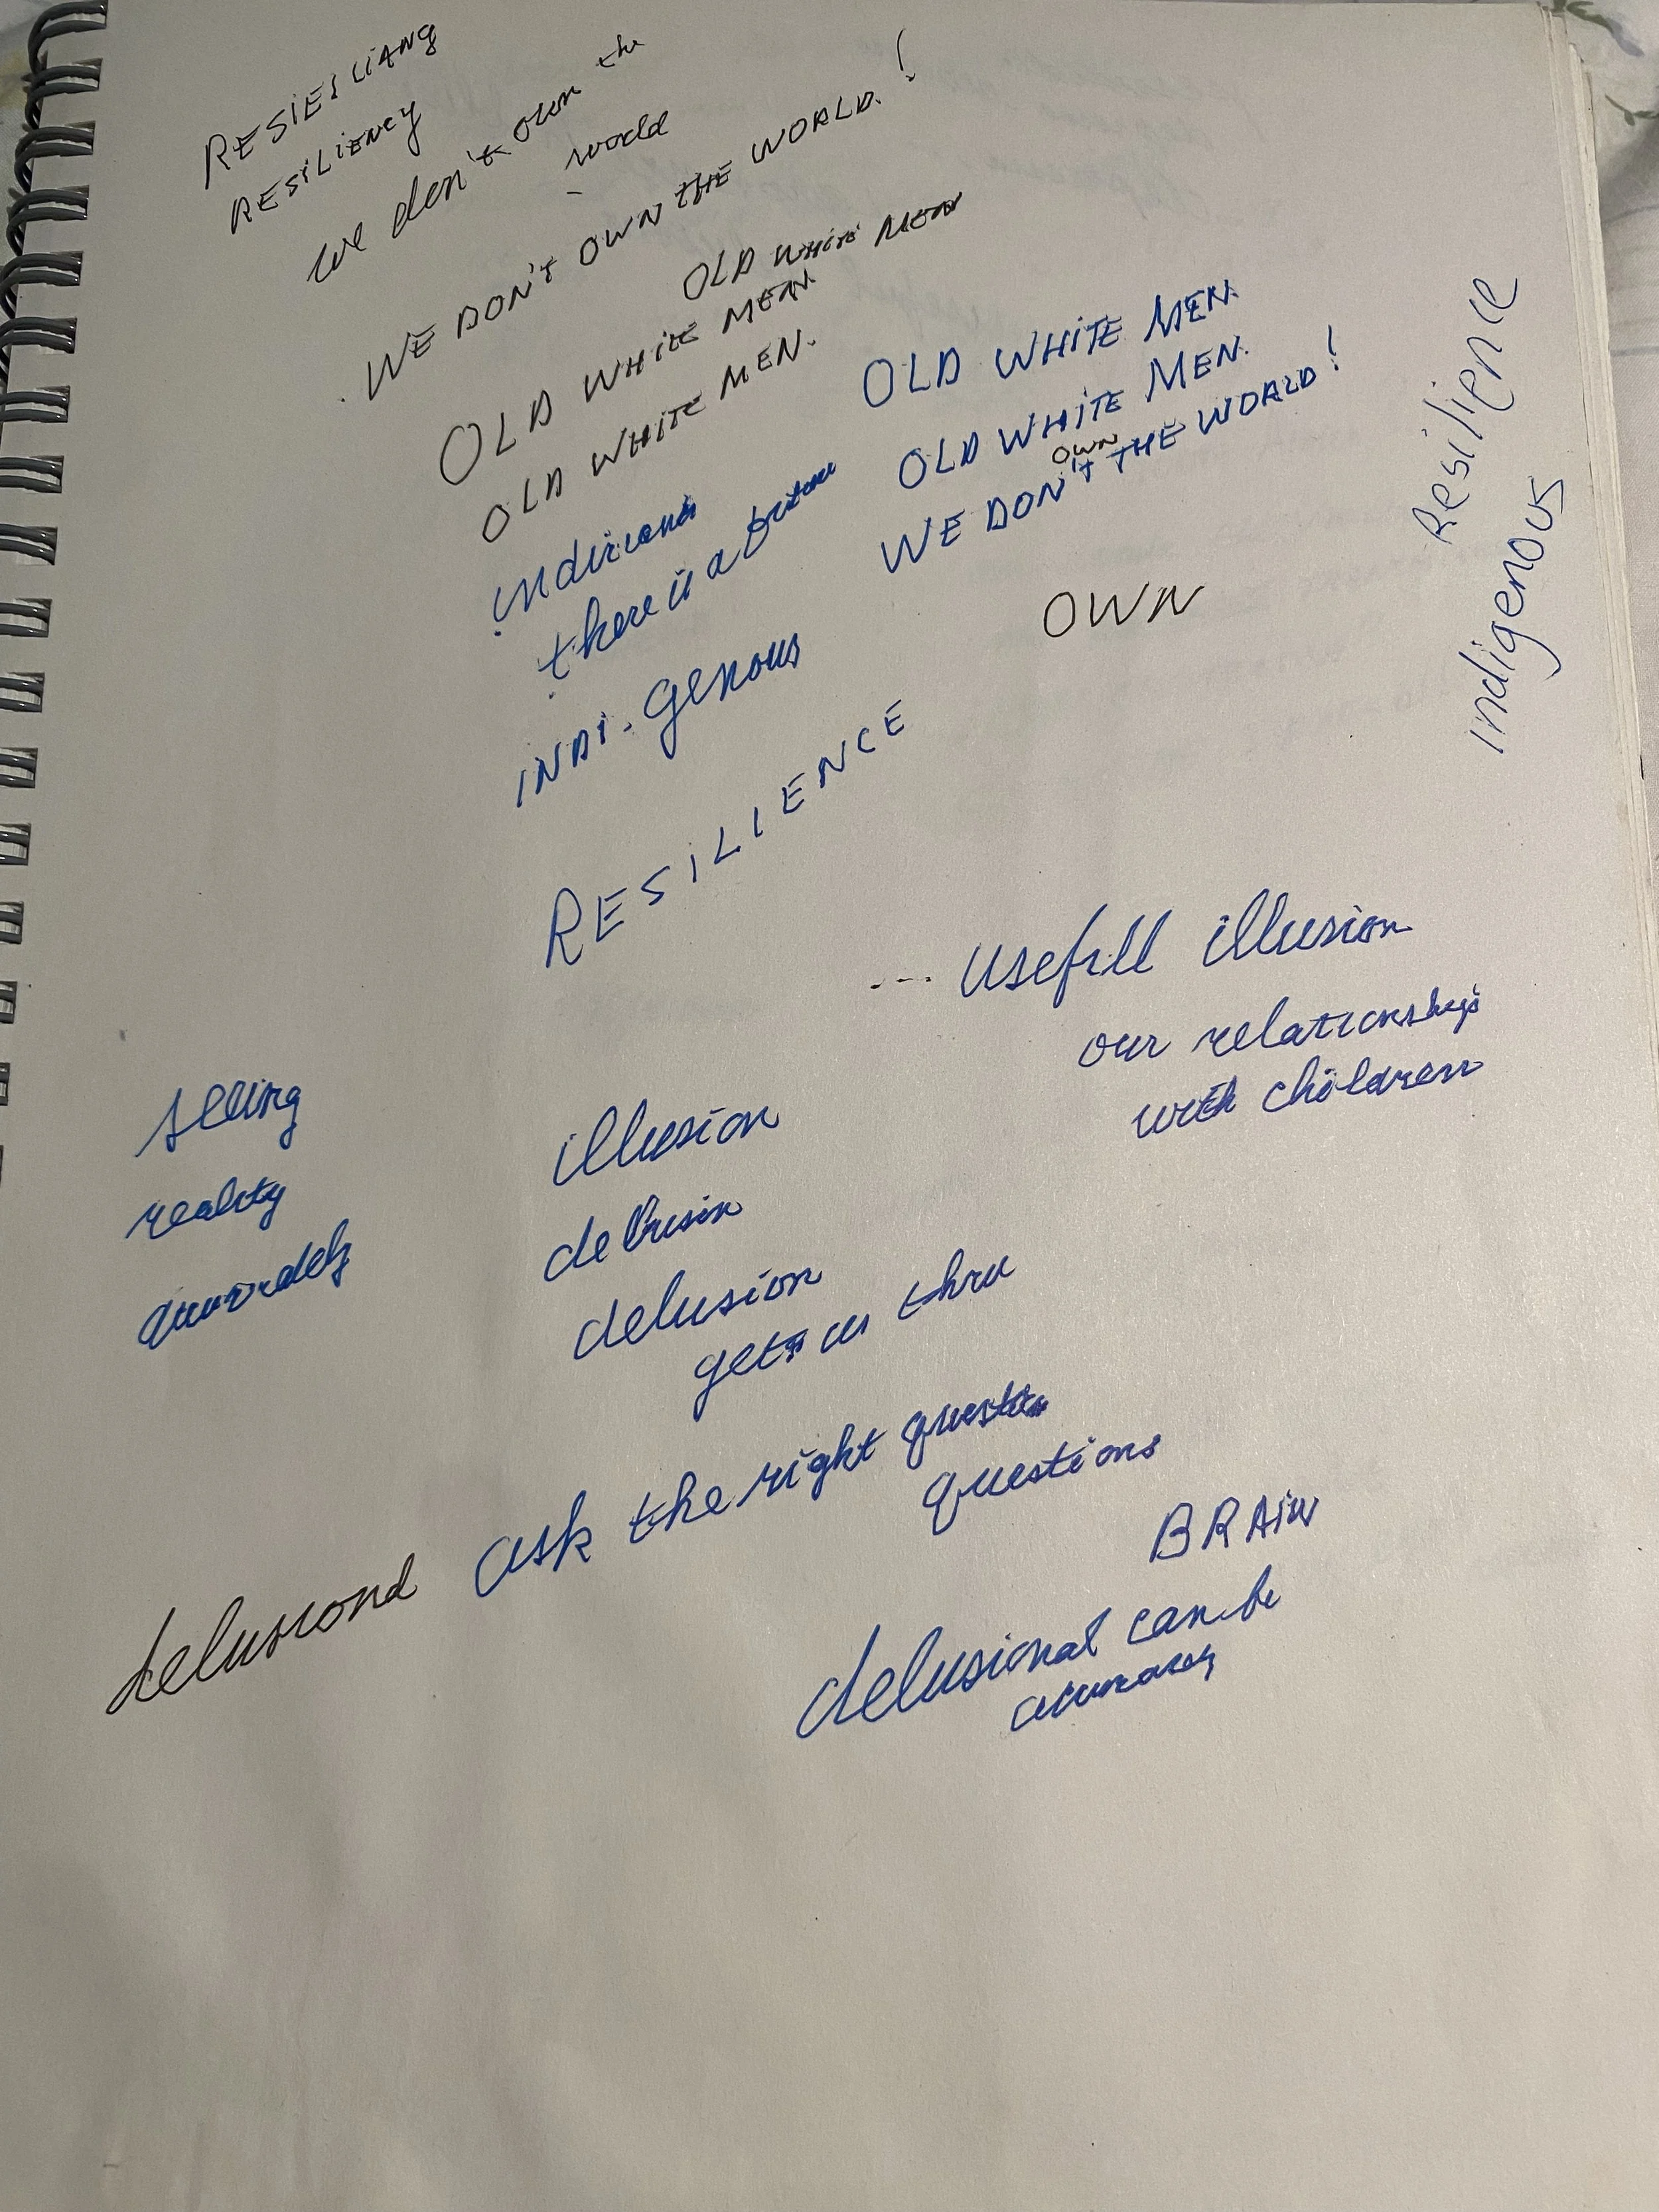 RESIESLIANG
RESILIENCY
we don't own the
world
WE DON'T OWN THE WORLD!
OLD WHITE MEN
OLD WHITE MEN.
OLD WHITE MEN.
OLD WHITE MEN.
OLD WHITE MEN.
WE DON'T OWN THE WORLD!
there is a
INDI-genous
OWN
Resilience
indigenous
RESILIENCE
--- usefull illusion
our relationship
with children
seeing
reality
illusion
delusion
gets us thru
ask the right
questions
BRAIN
delusional can be